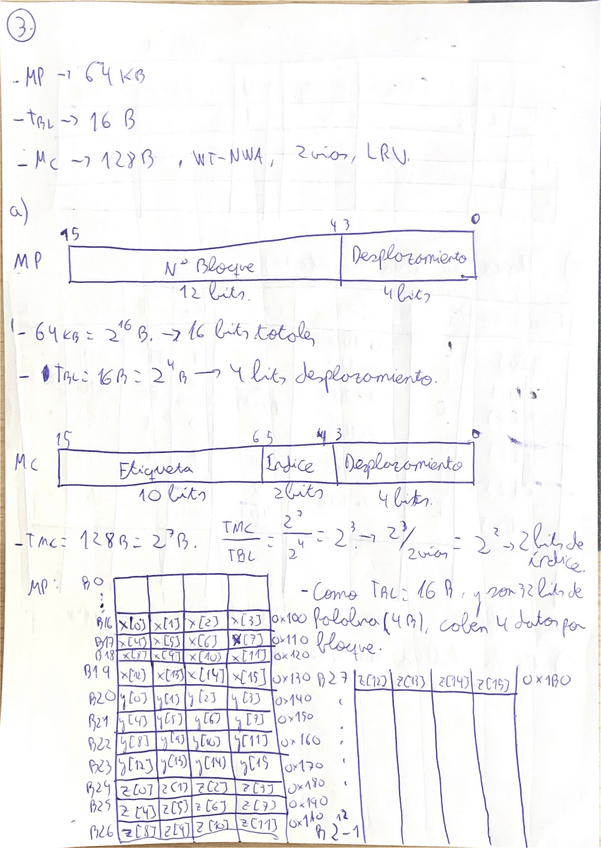 3.
- MP → 64 KB
- tBL → 16 B
- MC → 128 B , WT-NWA, 2 vías, LRU.
a)
15 4 3 0
MP Nº Bloque Desplazamiento
12 bits. 4 bits
- 64 KB = 2^16 B. → 16 bits totales
- TBL = 16 B = 2^4 B → 4 bits desplazamiento.
15 6 5 4 3 0
MC Etiqueta Índice Desplazamiento
10 bits 2 bits 4 bits.
- TMC = 128 B = 2^7 B. TMC/TBL = 2^7/2^4 = 2^3 → 2^3/2 vías = 2^2 → 2 bits de índice.
MP: B0
⋮
- Como TBL = 16 B, y son 32 bits de
palabra (4B), caben 4 datos por
bloque.
B16 x[0] x[1] x[2] x[3] 0x100
B17 x[4] x[5] x[6] x[7] 0x110
B18 x[8] x[9] x[10] x[11] 0x120
B19 x[12] x[13] x[14] x[15] 0x130
B20 y[0] y[1] y[2] y[3] 0x140
B21 y[4] y[5] y[6] y[7] 0x150
B22 y[8] y[9] y[10] y[11] 0x160
B23 y[12] y[13] y[14] y[15 0x170
B24 z[0] z[1] z[2] z[3] 0x180
B25 z[4] z[5] z[6] z[7] 0x190
B26 z[8] z[9] z[10] z[11] 0x1A0
B27 z[12] z[13] z[14] z[15] 0x1B0
B2^12-1